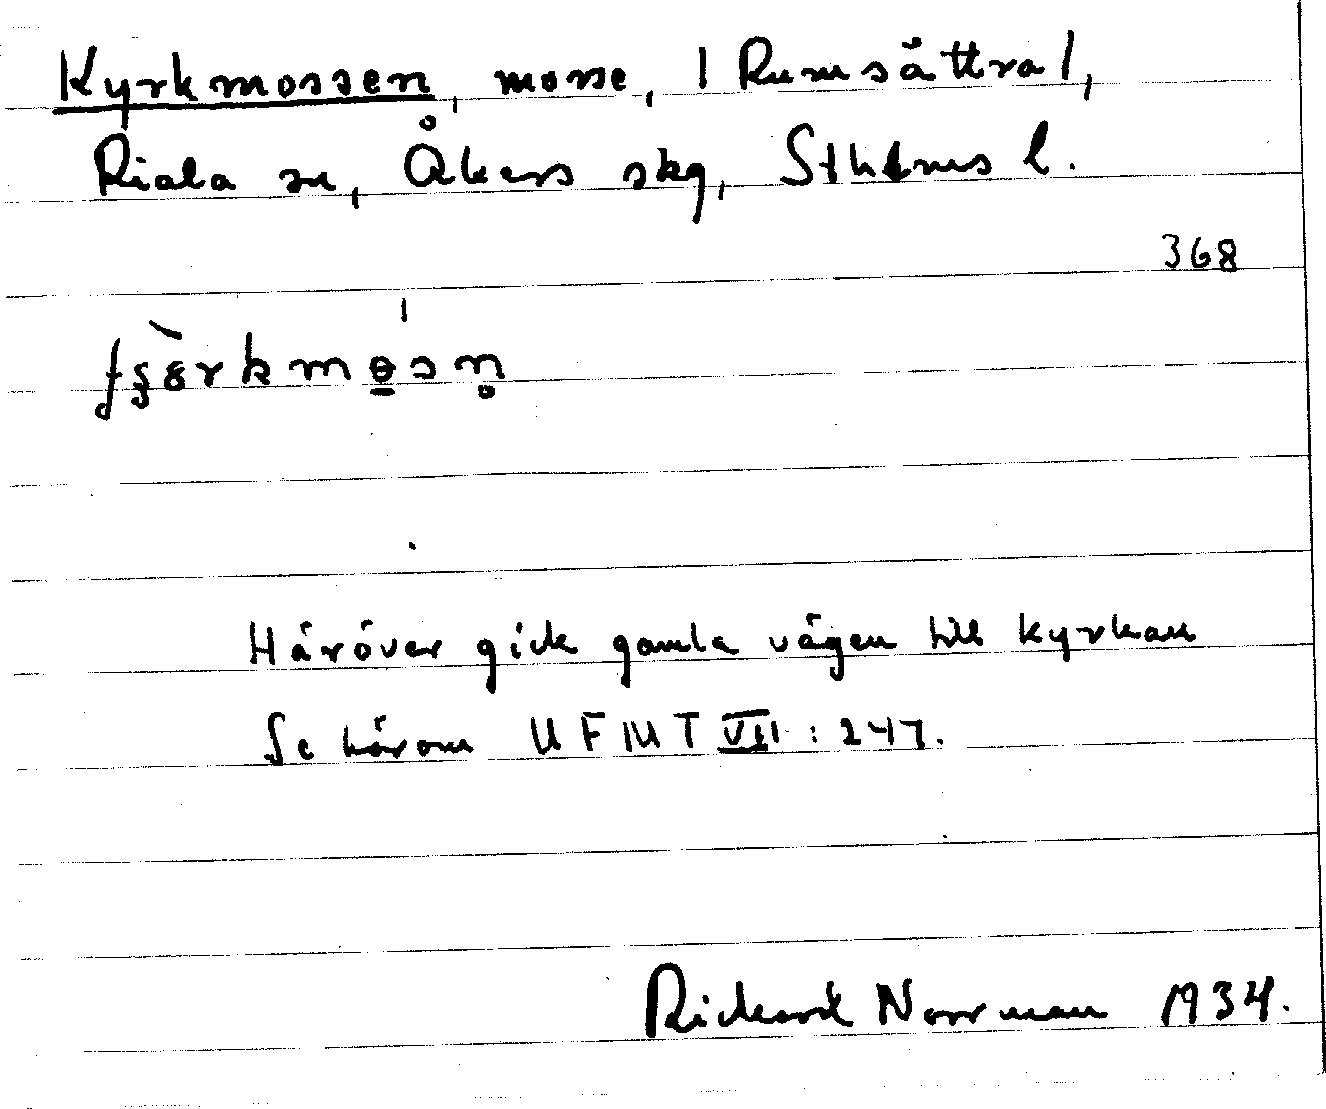 Kyrkmossen, mosse, | Rumsättra |,
Riala sn, Åkers skg, Sthlms l.
368
Häröver gick gamla vägen till kyrkan
Se härom UFMT VII: 247.
Rickard Norrman 1934.